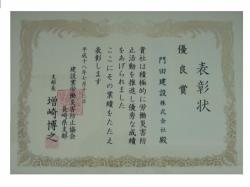 表彰状
優良賞
門田建設株式会社 殿
貴社は積極的に労働災害防
止活動を推進し優秀な成績
をあげられました
ここにその業績をたたえ
表彰します
平成十八年七月十三日
建設業労働災害防止協会
長崎県支部
支部長 増崎博之